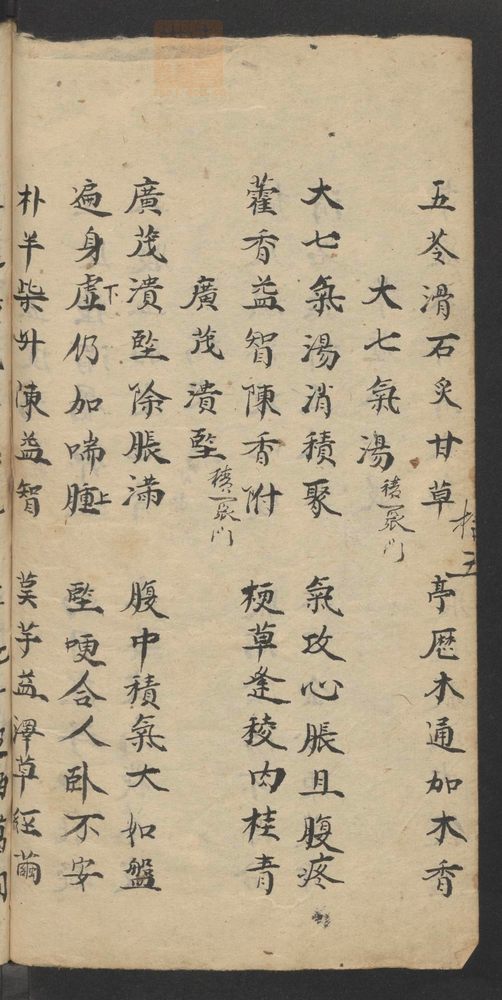 五苓滑石炙甘草 亭歷木通加木香
大七氣湯 積聚門
大七氣湯消積聚 氣攻心脹且腹疼
藿香益智陳香附 梗草蓬稜肉桂青
廣茂潰堅 積聚門
廣茂潰堅除脹滿 腹中積氣大如盤
遍身虛下仍加喘腫上 堅哽令人臥不安
朴半柴升陳益智 吳芋益澤草紅